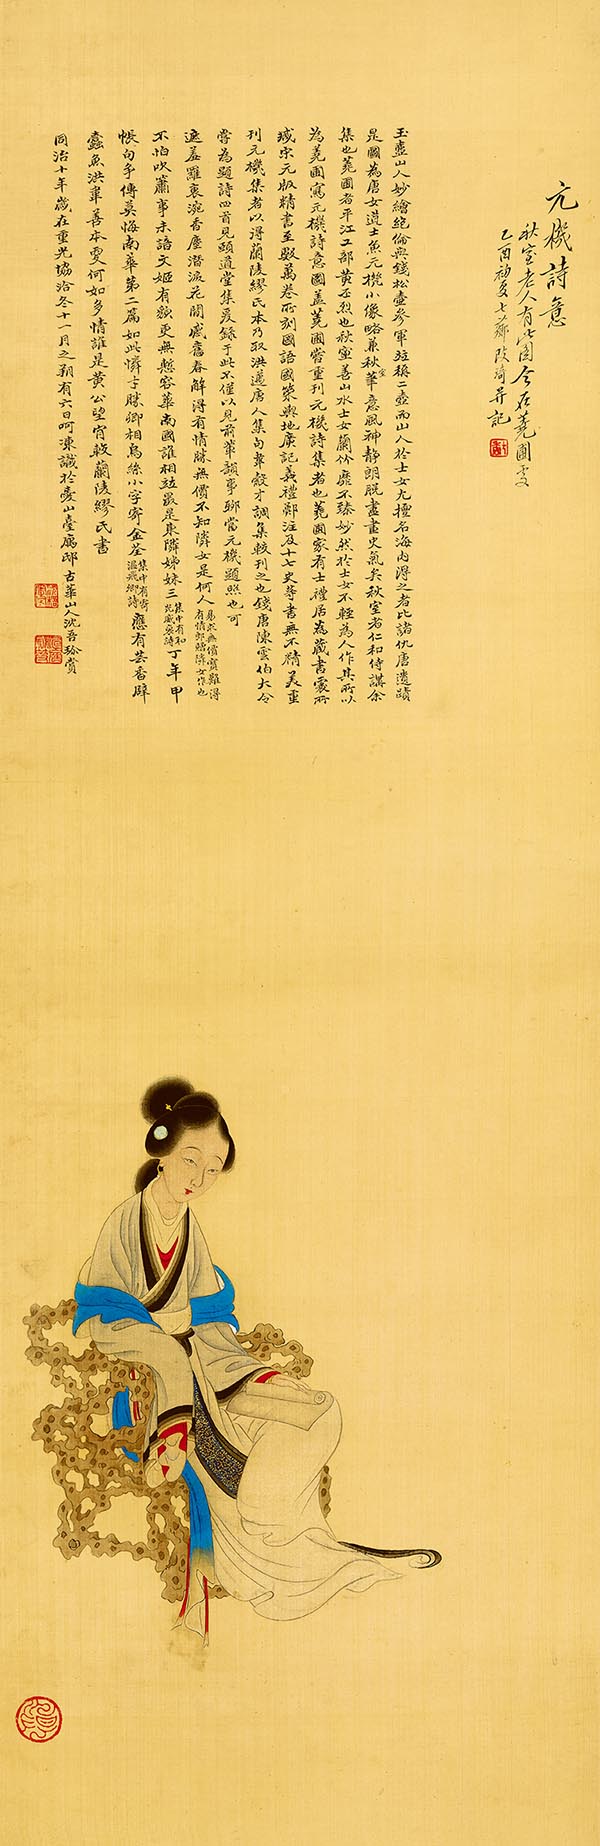 元機詩意
秋室老人有此圖今在蕘圃處
乙酉初夏七薌改琦并記
玉壺山人妙繪絕倫與錢松壺參軍竝稱二壺而山人於士女尤擅名海內得之者比諸仇唐遺蹟
是圖為唐女道士魚元機小像略兼秋室華意風神靜朗脫盡畫史氣矣秋室者仁和侍講余
集也蕘圃者平江工部黃丕烈也秋室善山水士女蘭竹靡不臻妙然於士女不輕為人作其所以
為蕘圃寫元機詩意圖蓋蕘圃嘗重刊元機詩集者也蕘圃家有士禮居為藏書處所
藏宋元版精書至數萬卷所刻國語國策與地廣記義禮鄭注及十七史等書無不精美重
刊元機集者以得蘭陵繆氏本乃取洪邁唐人集句韋縠才調集較刊之也錢唐陳雲伯大令
嘗為題詩四首見頤道堂集爰錄于此不僅以見前輩韻事聊當元機題照也可
遮羞離裹涴香塵潛淚花間感舊春解得有情勝無價不知隣女是何人 易求無價寶難得有情郎贈隣女作也
不怕吹蕭事未諧文姬有願更無懸容華南國誰相竝最是東隣姊妹三 集中有和光威裒詩 丁年甲
帳句爭傳莫悔南華第二篇如此憐才勝卿相烏絲小字寄金荃 集中有寄溫飛卿詩 應有芸香辟
蠹魚洪韋善本更何如多情誰是黃公望肯敎蘭陵繆氏書
同治十年歲在重光協洽冬十一月之朔有六日呵凍識於壺山臺廨邸古華山人沈吾珍賞